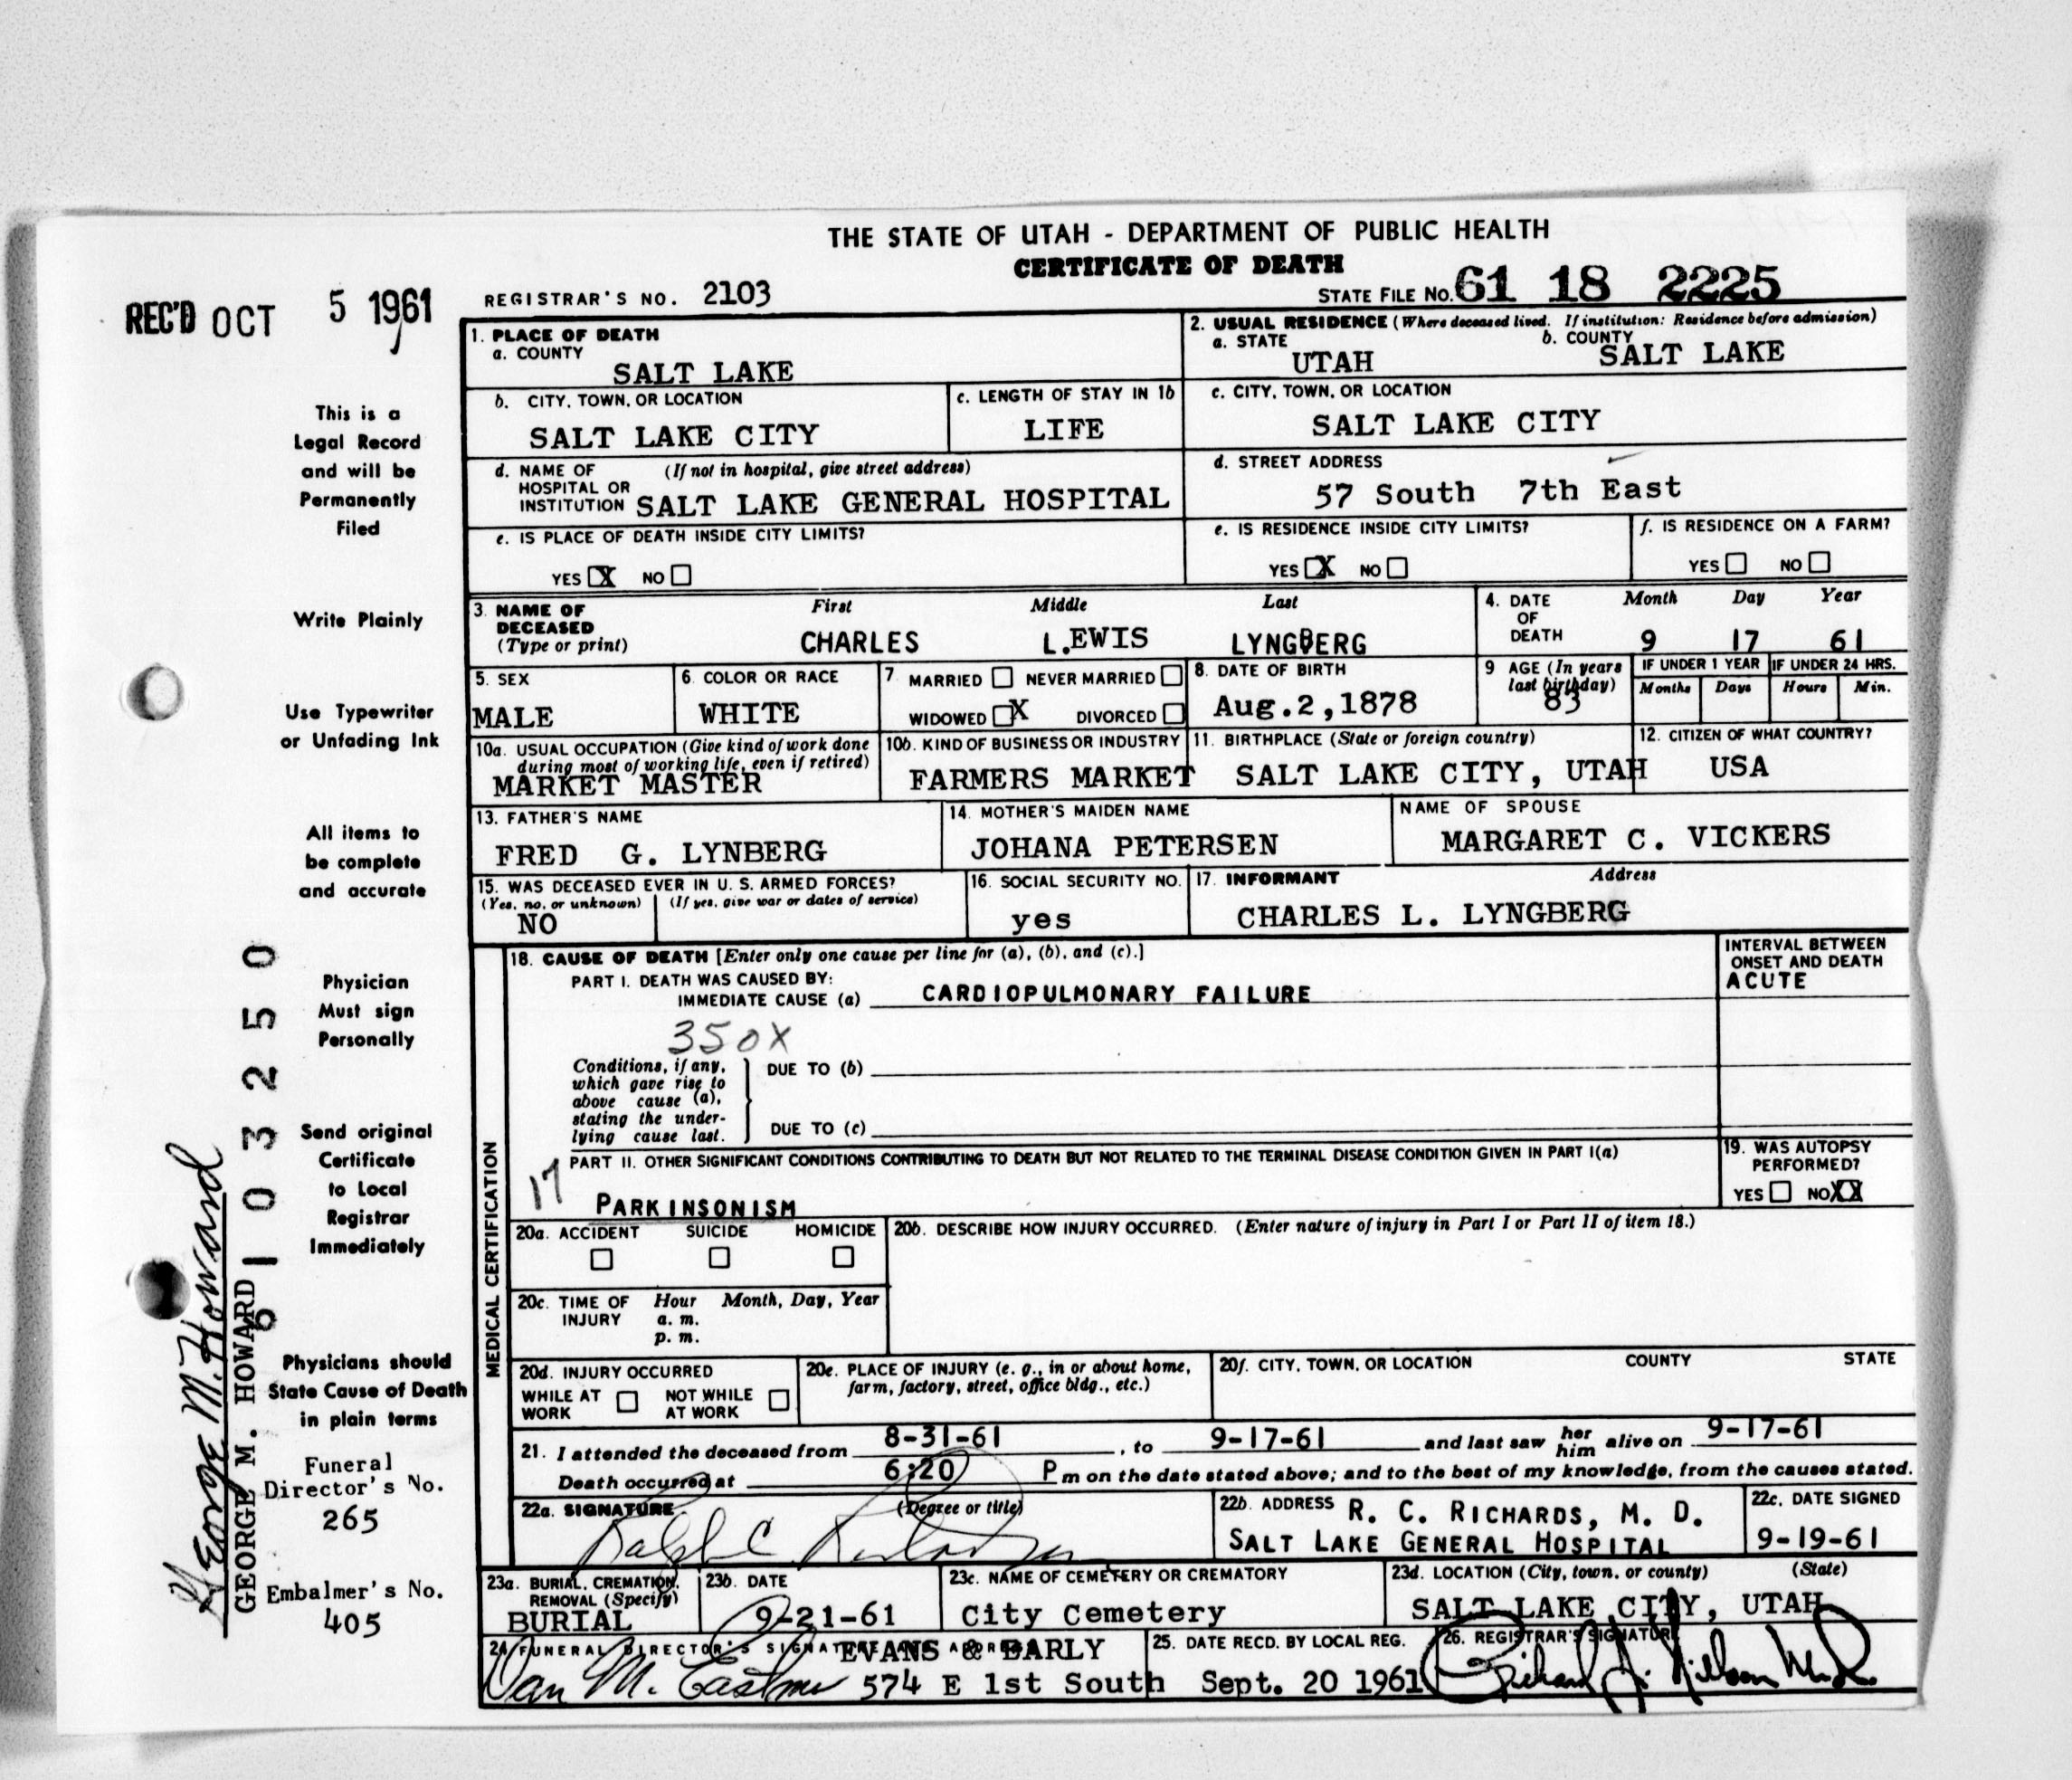 THE STATE OF UTAH - DEPARTMENT OF PUBLIC HEALTH
CERTIFICATE OF DEATH
REC'D OCT 5 1961
REGISTRAR'S NO. 2103
STATE FILE NO. 61 18 2225
This is a
Legal Record
and will be
Permanently
Filed
Write Plainly
Use Typewriter
or Unfading Ink
All items to
be complete
and accurate
Physician
Must sign
Personally
Send original
Certificate
to Local
Registrar
Immediately
Physicians should
State Cause of Death
in plain terms
Funeral
Director's No.
265
Embalmer's No.
405
George M. Howard
GEORGE M. HOWARD
61 03250
1. PLACE OF DEATH
a. COUNTY
SALT LAKE
2. USUAL RESIDENCE (Where deceased lived. If institution: Residence before admission)
a. STATE
UTAH
b. COUNTY
SALT LAKE
b. CITY, TOWN, OR LOCATION
SALT LAKE CITY
c. LENGTH OF STAY IN 1b
LIFE
c. CITY, TOWN, OR LOCATION
SALT LAKE CITY
d. NAME OF (If not in hospital, give street address)
HOSPITAL OR
INSTITUTION SALT LAKE GENERAL HOSPITAL
d. STREET ADDRESS
57 South 7th East
e. IS PLACE OF DEATH INSIDE CITY LIMITS?
YES X NO
e. IS RESIDENCE INSIDE CITY LIMITS?
YES X NO
f. IS RESIDENCE ON A FARM?
YES NO
3. NAME OF
DECEASED
(Type or print)
First Middle Last
CHARLES L.EWIS LYNGBERG
4. DATE
OF
DEATH
Month Day Year
9 17 61
5. SEX
MALE
6. COLOR OR RACE
WHITE
7 MARRIED NEVER MARRIED
WIDOWED X DIVORCED
8. DATE OF BIRTH
Aug.2,1878
9 AGE (In years
last birthday)
83
IF UNDER 1 YEAR
Months Days
IF UNDER 24 HRS.
Hours Min.
10a. USUAL OCCUPATION (Give kind of work done
during most of working life, even if retired)
MARKET MASTER
10b. KIND OF BUSINESS OR INDUSTRY
FARMERS MARKET
11. BIRTHPLACE (State or foreign country)
SALT LAKE CITY, UTAH
12. CITIZEN OF WHAT COUNTRY?
USA
13. FATHER'S NAME
FRED G. LYNBERG
14. MOTHER'S MAIDEN NAME
JOHANA PETERSEN
NAME OF SPOUSE
MARGARET C. VICKERS
15. WAS DECEASED EVER IN U. S. ARMED FORCES?
(Yes, no, or unknown) (If yes, give war or dates of service)
NO
16. SOCIAL SECURITY NO.
yes
17. INFORMANT Address
CHARLES L. LYNGBERG
MEDICAL CERTIFICATION
18. CAUSE OF DEATH [Enter only one cause per line for (a), (b), and (c).]
PART I. DEATH WAS CAUSED BY:
IMMEDIATE CAUSE (a) CARDIOPULMONARY FAILURE
INTERVAL BETWEEN
ONSET AND DEATH
ACUTE
350X
Conditions, if any,
which gave rise to
above cause (a),
stating the under-
lying cause last.
DUE TO (b)
DUE TO (c)
PART II. OTHER SIGNIFICANT CONDITIONS CONTRIBUTING TO DEATH BUT NOT RELATED TO THE TERMINAL DISEASE CONDITION GIVEN IN PART I(a)
17
PARKINSONISM
19. WAS AUTOPSY
PERFORMED?
YES NO XX
20a. ACCIDENT SUICIDE HOMICIDE
20b. DESCRIBE HOW INJURY OCCURRED. (Enter nature of injury in Part I or Part II of item 18.)
20c. TIME OF
INJURY
Hour Month, Day, Year
a. m.
p. m.
20d. INJURY OCCURRED
WHILE AT
WORK
NOT WHILE
AT WORK
20e. PLACE OF INJURY (e. g., in or about home,
farm, factory, street, office bldg., etc.)
20f. CITY, TOWN, OR LOCATION COUNTY STATE
21. I attended the deceased from 8-31-61, to 9-17-61 and last saw her him alive on 9-17-61
Death occurred at 6:20 P m on the date stated above; and to the best of my knowledge, from the causes stated.
22a. SIGNATURE (Degree or title)
Ralph C. Richards
22b. ADDRESS R. C. RICHARDS, M. D.
SALT LAKE GENERAL HOSPITAL
22c. DATE SIGNED
9-19-61
23a. BURIAL, CREMATION,
REMOVAL (Specify)
BURIAL
23b. DATE
9-21-61
23c. NAME OF CEMETERY OR CREMATORY
City Cemetery
23d. LOCATION (City, town, or county) (State)
SALT LAKE CITY, UTAH
24 FUNERAL DIRECTOR'S SIGNATURE AND ADDRESS
EVANS & EARLY
Dan M. Eastman 574 E 1st South
25. DATE RECD. BY LOCAL REG.
Sept. 20 1961
26. REGISTRAR'S SIGNATURE